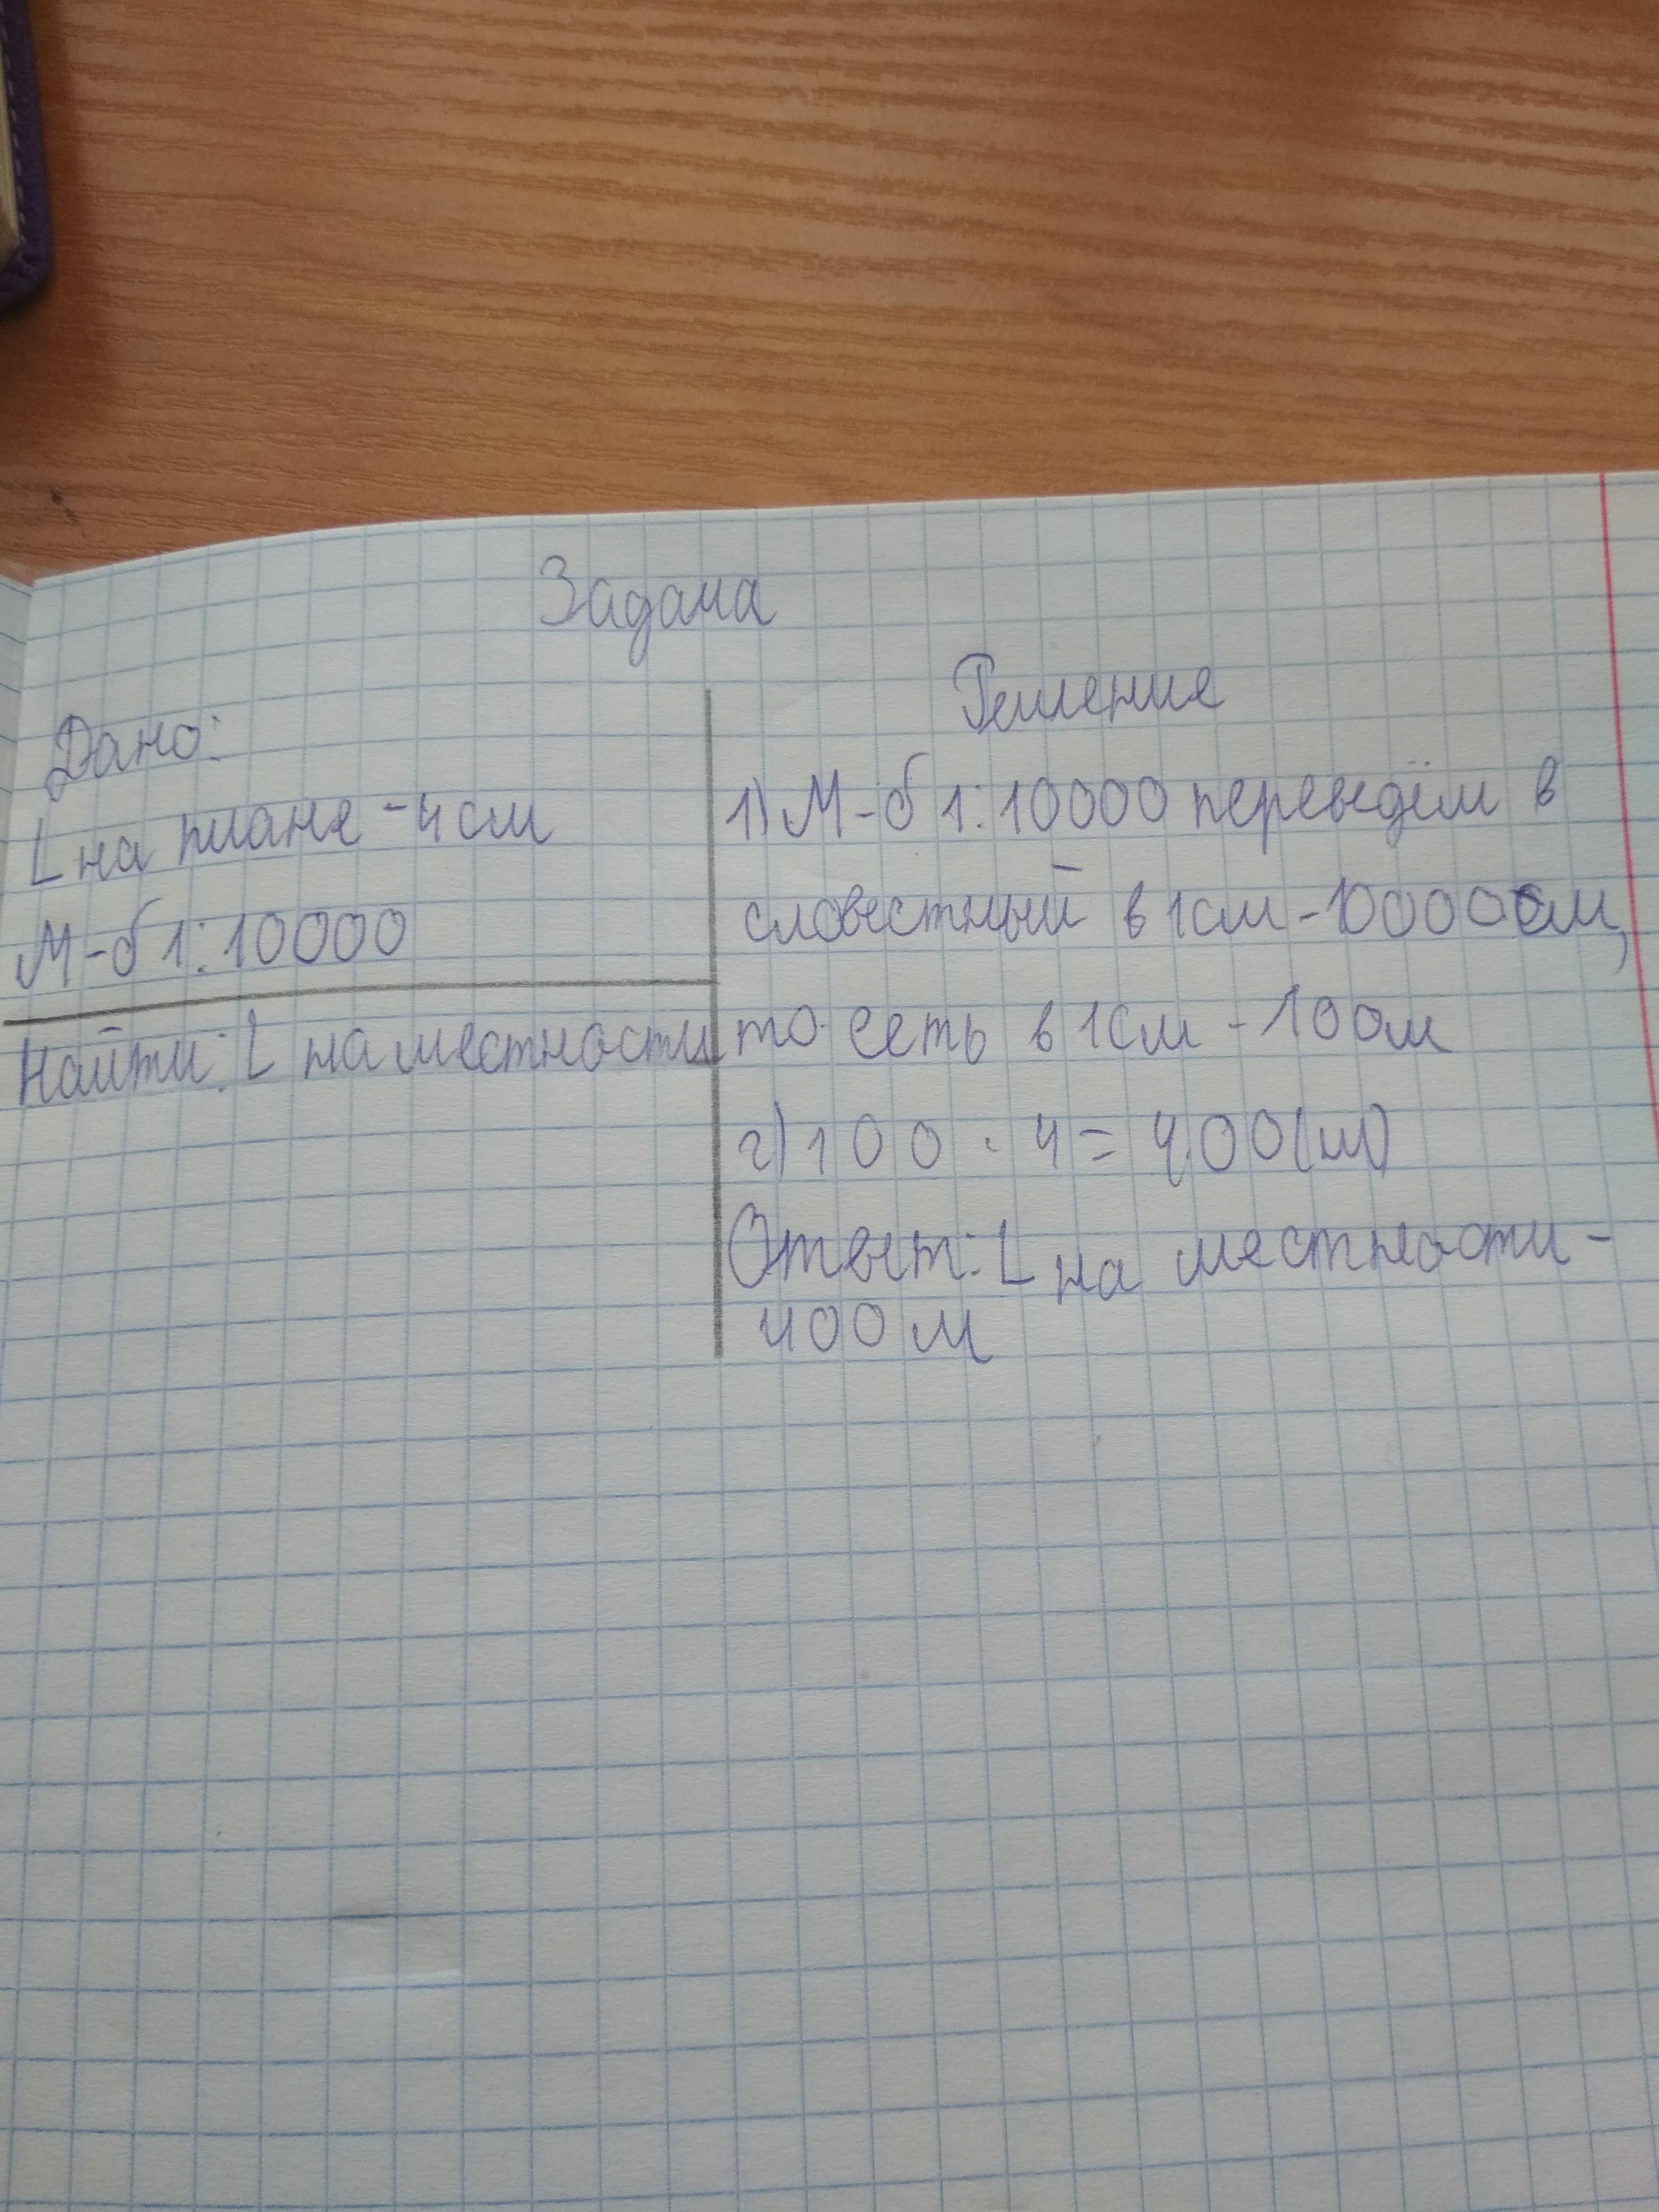 Задача
Дано:
L на плане - 4 см
М-б 1:10000
Найти: L на местности
Решение
1) М-б 1:10000 переведём в
словестный в 1см - 10000см,
то есть в 1см - 100м
2) 100 · 4 = 400(м)
Ответ: L на местности -
400 м